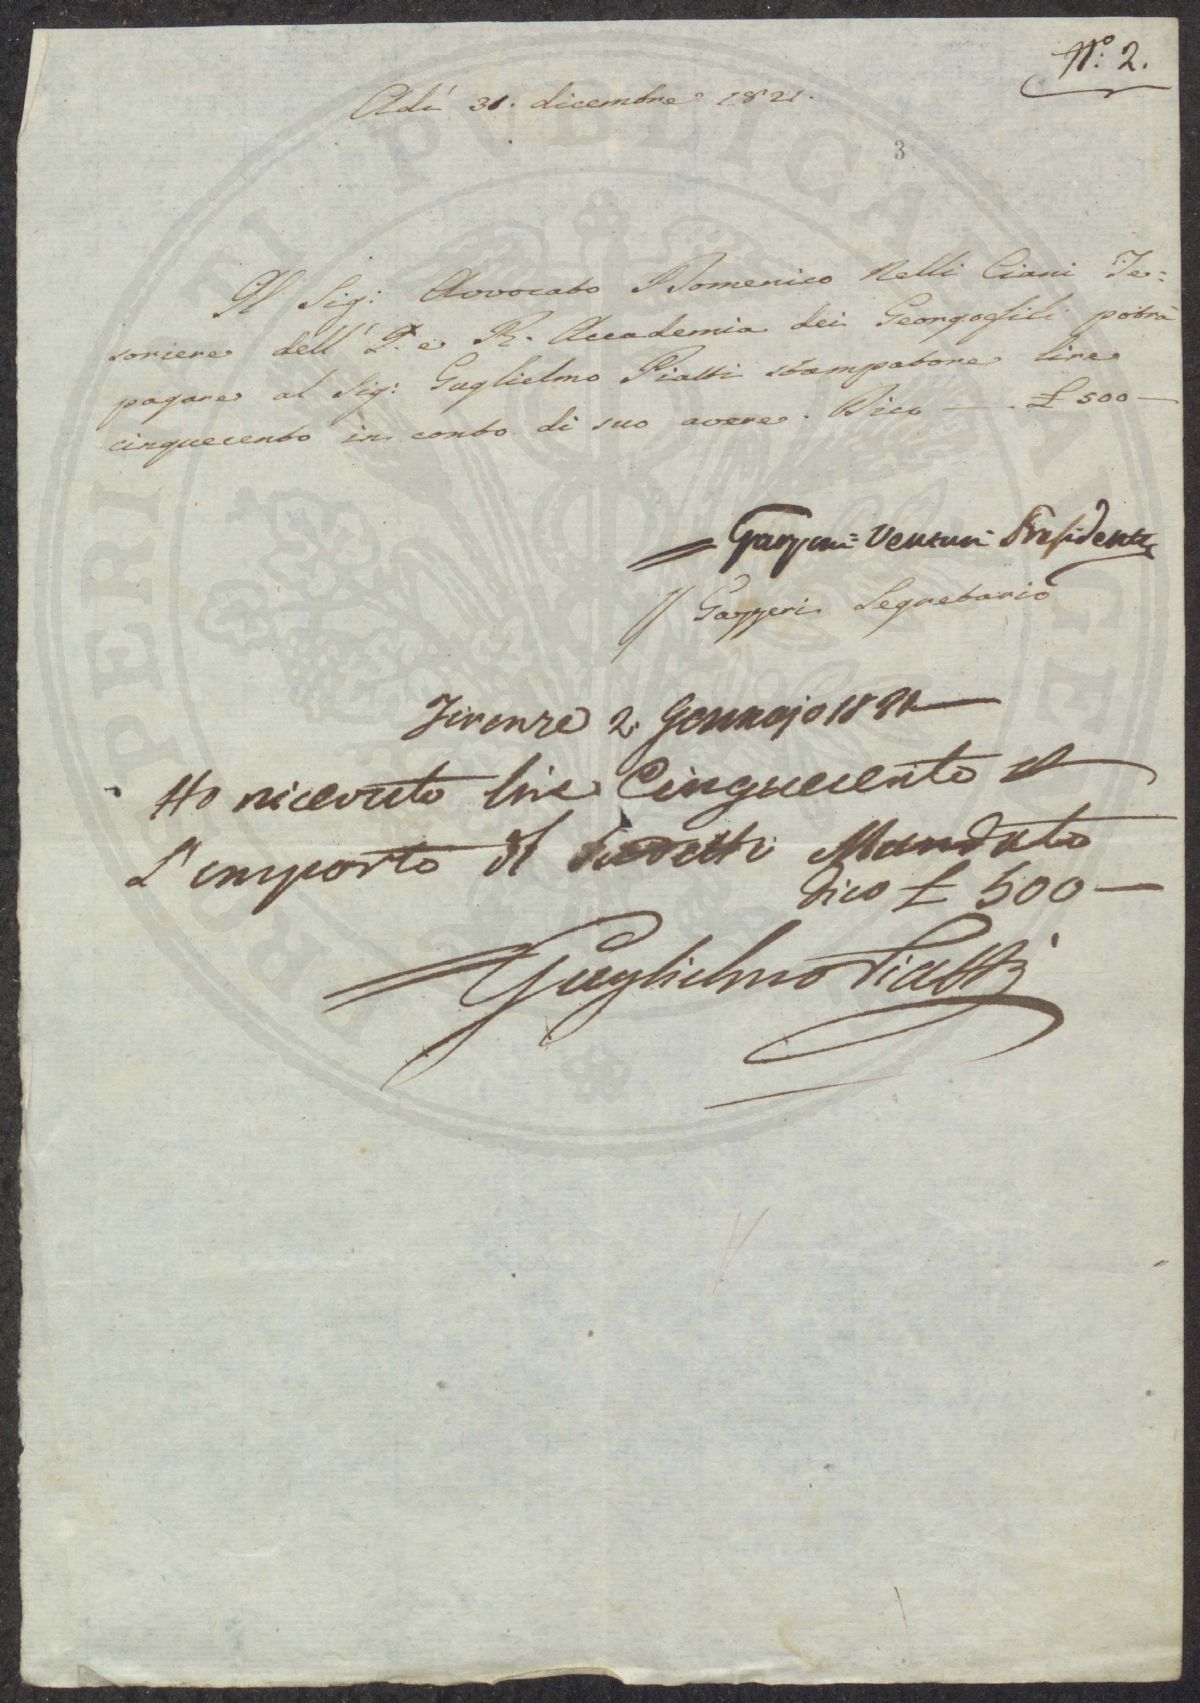 N.º 2.
Adì 31. dicembre 1821.
3
Il Sig: Avvocato Domenico Nelli Ciani Te=
soriere dell' I. e R. Accademia dei Georgofili potrà
pagare al Sig: Guglielmo Piatti stampatore lire
cinquecento in conto di suo avere. Dico — £ 500 —
Garzoni= Venturi Presidente
Gazzeri Segretario
Firenze 2. Gennajo
Ho ricevuto lire Cinquecento
L'importo del Suddetti Mandato
Dico £ 500 —
Guglielmo Piatti
PROSPERITATI PUBLICAE AUGENDAE